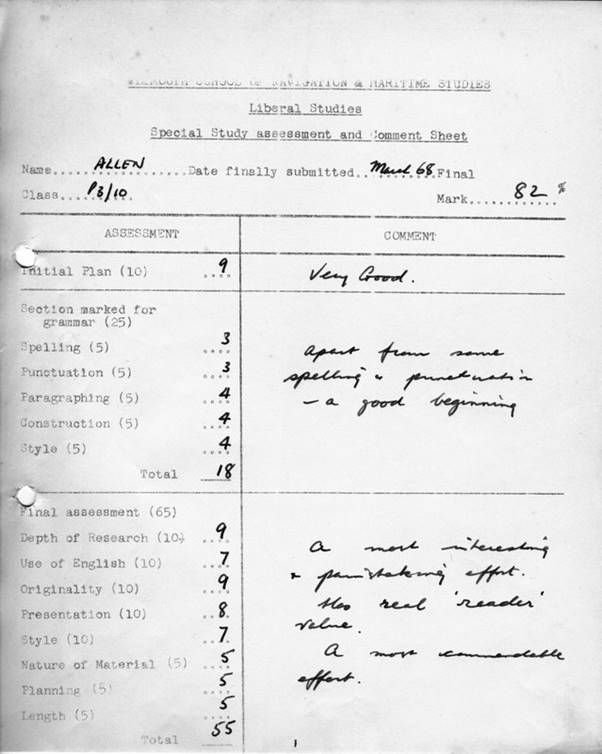 SCHOOL OF NAVIGATION & MARITIME STUDIES
Liberal Studies
Special Study assessment and Comment Sheet
Name.....ALLEN.....Date finally submitted..March 68.Final
Class..P3/10.. Mark....82..%
ASSESSMENT COMMENT
Initial Plan (10) 9 Very Good.
Section marked for
grammar (25)
Spelling (5) 3 apart from some
Punctuation (5) 3 spelling & punctuation
Paragraphing (5) 4 – a good beginning
Construction (5) 4
Style (5) 4
Total 18
Final assessment (65)
Depth of Research (10) 9 A most interesting
Use of English (10) 7 & painstaking effort.
Originality (10) 9 Has real 'reader'
Presentation (10) 8 value.
Style (10) 7 A most commendable
Nature of Material (5) 5 effort.
Planning (5) 5
Length (5) 5
Total 55